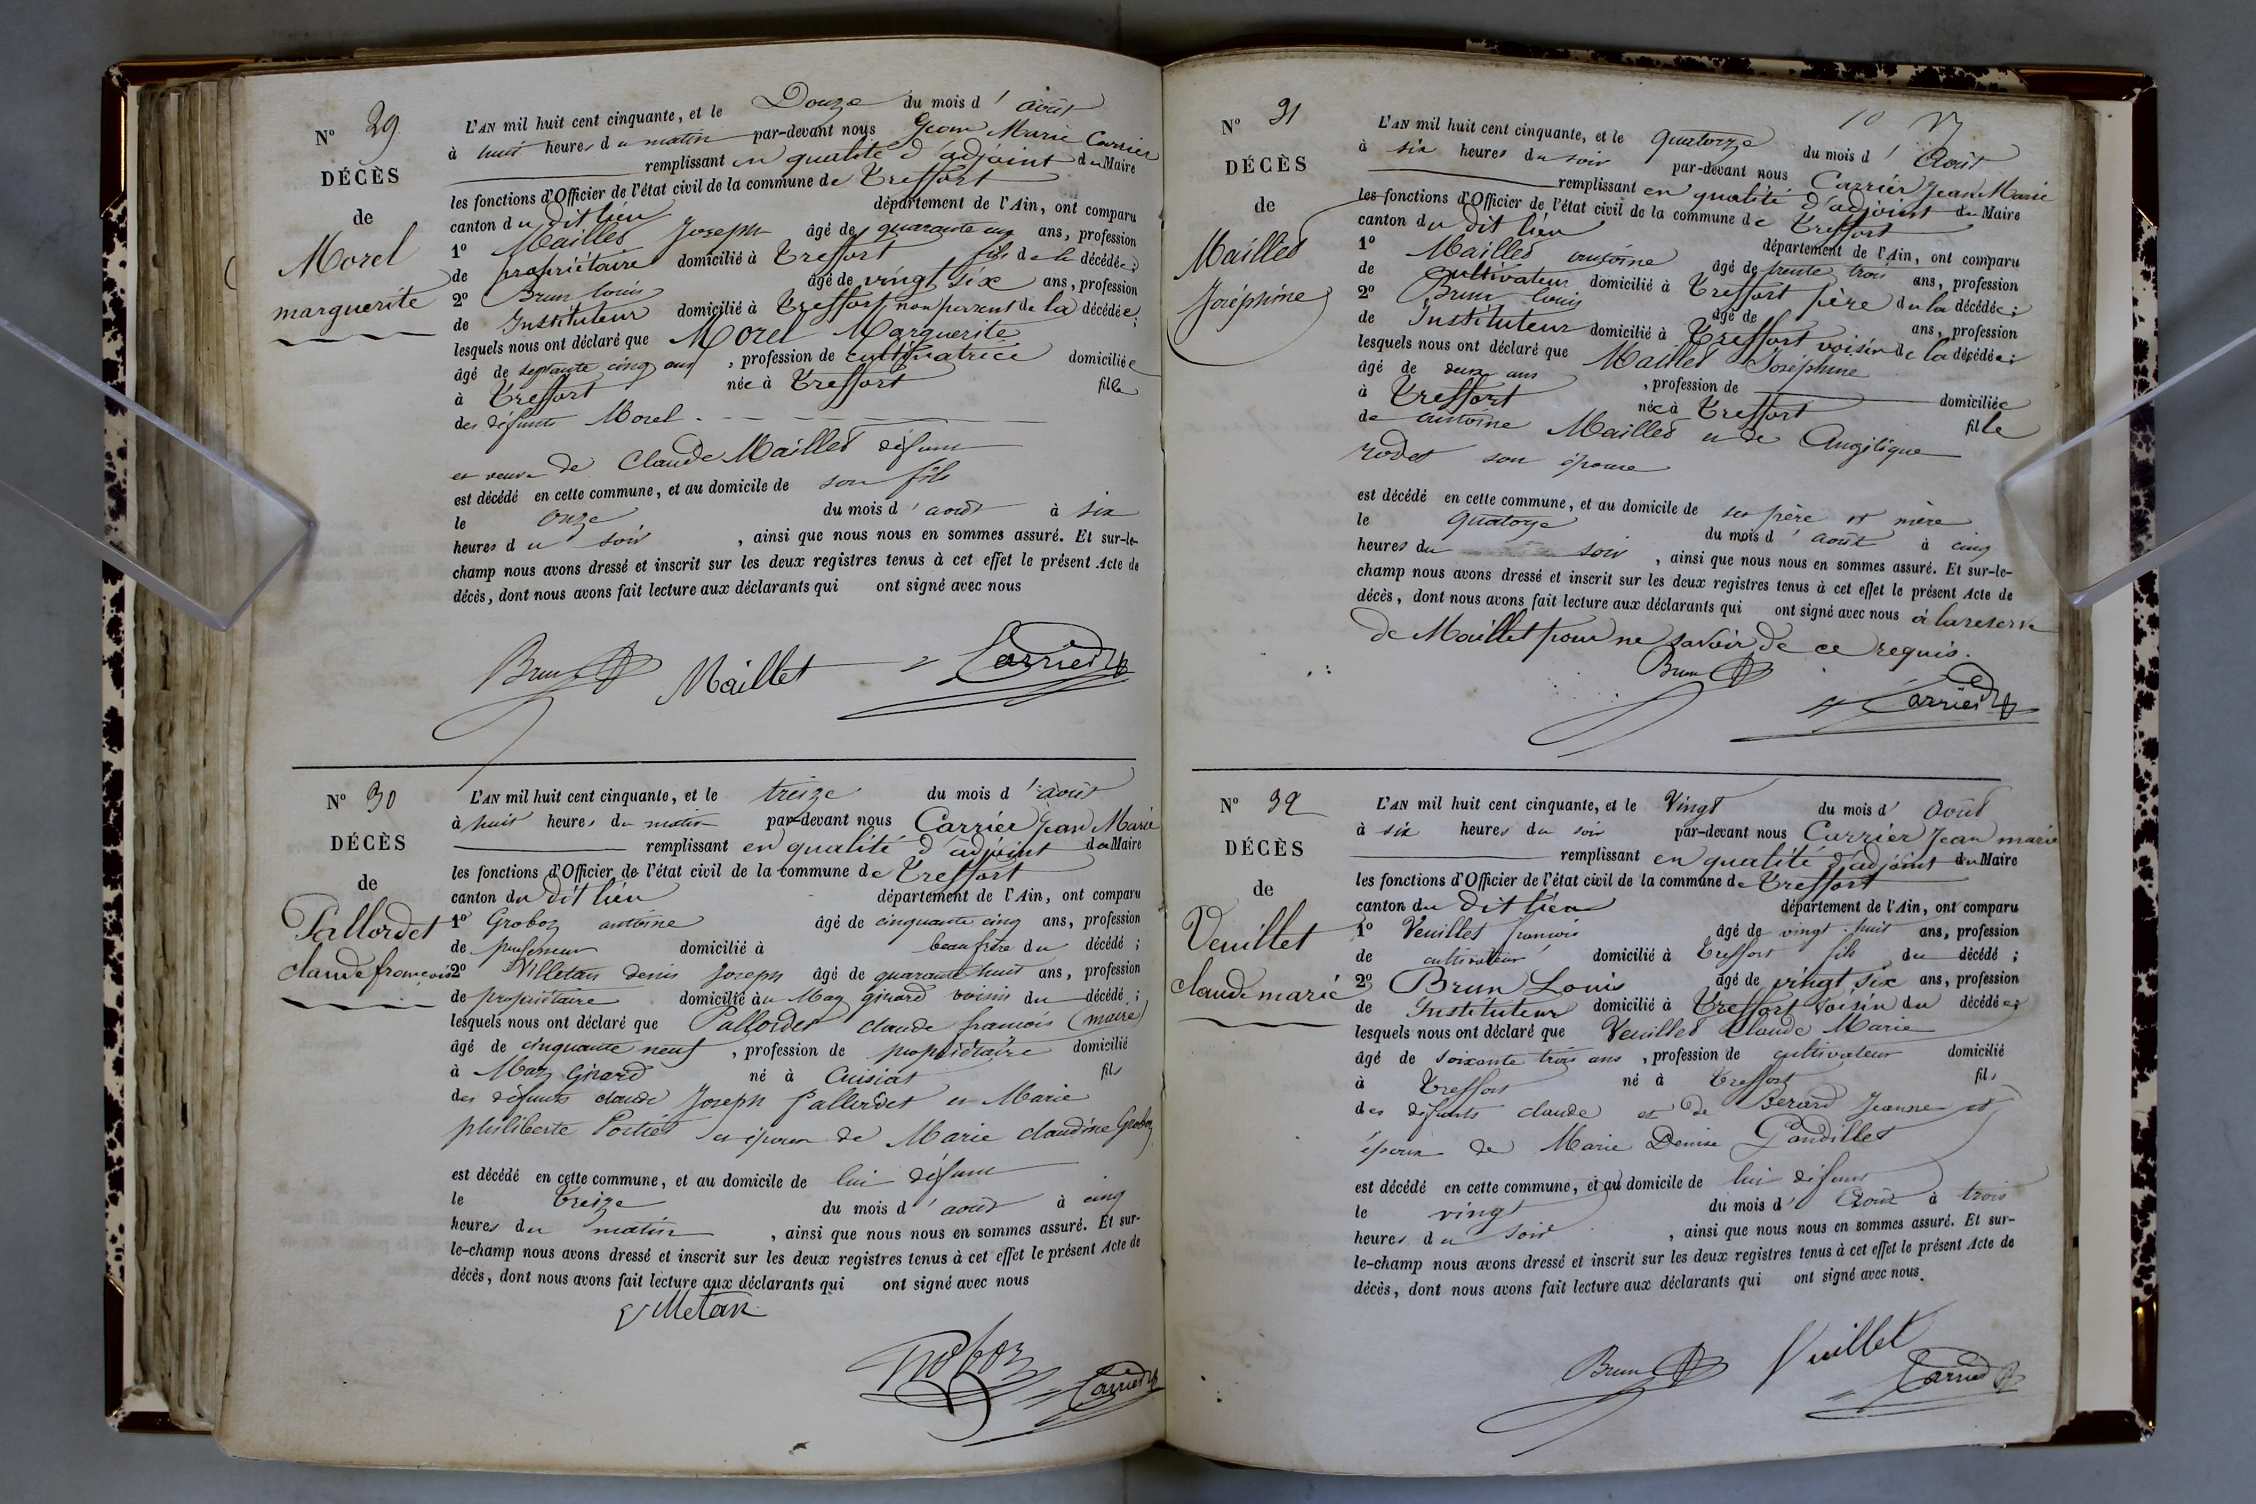 Nº 29
DÉCÈS
de
Morel
marguerite
L'AN mil huit cent cinquante, et le Douze du mois d'août
à huit heures du matin par-devant nous Jean Marie Carrier
remplissant en qualité d'adjoint du Maire
les fonctions d'Officier de l'état civil de la commune de Treffort
canton du dit lieu département de l'Ain, ont comparu
1º Maillet Joseph âgé de quarante un ans, profession
de propriétaire domicilié à Treffort fils de la décédée;
2º Brun louis âgé de vingt six ans, profession
de Instituteur domicilié à Treffort non parent de la décédée;
lesquels nous ont déclaré que Morel Marguerite
âgé de septante cinq ans, profession de cultivatrice domiciliée
à Treffort née à Treffort fille
des défunts Morel
et veuve de Claude Maillet défunt
est décédé en cette commune, et au domicile de son fils
le onze du mois d'août à six
heures du soir, ainsi que nous nous en sommes assuré. Et sur-le-
champ nous avons dressé et inscrit sur les deux registres tenus à cet effet le présent Acte de
décès, dont nous avons fait lecture aux déclarants qui ont signé avec nous
Brun Maillet Carrier
Nº 30
DÉCÈS
de
Pallordet
claude françois
L'AN mil huit cent cinquante, et le treize du mois d'août
à huit heures du matin par-devant nous Carrier Jean Marie
remplissant en qualité d'adjoint du Maire
les fonctions d'Officier de l'état civil de la commune de Treffort
canton du dit lieu département de l'Ain, ont comparu
1º Groboz antoine âgé de cinquante cinq ans, profession
de professeur domicilié à beau frère du décédé;
2º Villetan denis Joseph âgé de quarante huit ans, profession
de propriétaire domicilié au Maz girard voisin du décédé;
lesquels nous ont déclaré que Pallordet claude francois (maire)
âgé de cinquante neuf, profession de propriétaire domicilié
à Maz Girard né à Cuisiat fils
des défunts claude Joseph Pallordet et Marie
philiberte Portier et époux de Marie claudine Groboz
est décédé en cette commune, et au domicile de lui défunt
le treize du mois d'août à cinq
heures du matin, ainsi que nous nous en sommes assuré. Et sur-
le-champ nous avons dressé et inscrit sur les deux registres tenus à cet effet le présent Acte de
décès, dont nous avons fait lecture aux déclarants qui ont signé avec nous
Villetan
Groboz Carrier
10
Nº 31
DÉCÈS
de
Maillet
Joséphine
L'AN mil huit cent cinquante, et le quatorze du mois d'Août
à six heures du soir par-devant nous Carrier Jean Marie
remplissant en qualité d'adjoint du Maire
les fonctions d'Officier de l'état civil de la commune de Treffort
canton du dit lieu département de l'Ain, ont comparu
1º Maillet antoine âgé de trente trois ans, profession
de cultivateur domicilié à Treffort père de la décédée;
2º Brun louis âgé de ans, profession
de Instituteur domicilié à Treffort voisin de la décédée;
lesquels nous ont déclaré que Maillet Joséphine
âgé de deux ans, profession de domiciliée
à Treffort née à Treffort fille
de antoine Maillet et de Angélique
rodet son épouse
est décédé en cette commune, et au domicile de ses père et mère
le quatorze du mois d'août à cinq
heures du soir, ainsi que nous nous en sommes assuré. Et sur-le-
champ nous avons dressé et inscrit sur les deux registres tenus à cet effet le présent Acte de
décès, dont nous avons fait lecture aux déclarants qui ont signé avec nous à la reserve
de Maillet pour ne savoir de ce requis.
Brun Carrier
Nº 32
DÉCÈS
de
Veuillet
claude marie
L'AN mil huit cent cinquante, et le Vingt du mois d'Août
à six heures du soir par-devant nous Carrier Jean marie
remplissant en qualité d'adjoint du Maire
les fonctions d'Officier de l'état civil de la commune de Treffort
canton du dit lieu département de l'Ain, ont comparu
1º Veuillet francois âgé de vingt huit ans, profession
de cultivateur domicilié à Treffort fils du décédé;
2º Brun Louis âgé de vingt six ans, profession
de Instituteur domicilié à Treffort voisin du décédé;
lesquels nous ont déclaré que Veuillet Claude Marie
âgé de soixante trois ans, profession de cultivateur domicilié
à Treffort né à Treffort fils
des défunts claude et de Berard Jeanne et
époux de Marie Denise Gandillet
est décédé en cette commune, et au domicile de lui défunt
le vingt du mois d'Août à trois
heures du soir, ainsi que nous nous en sommes assuré. Et sur-
le-champ nous avons dressé et inscrit sur les deux registres tenus à cet effet le présent Acte de
décès, dont nous avons fait lecture aux déclarants qui ont signé avec nous.
Brun Vuillet Carrier